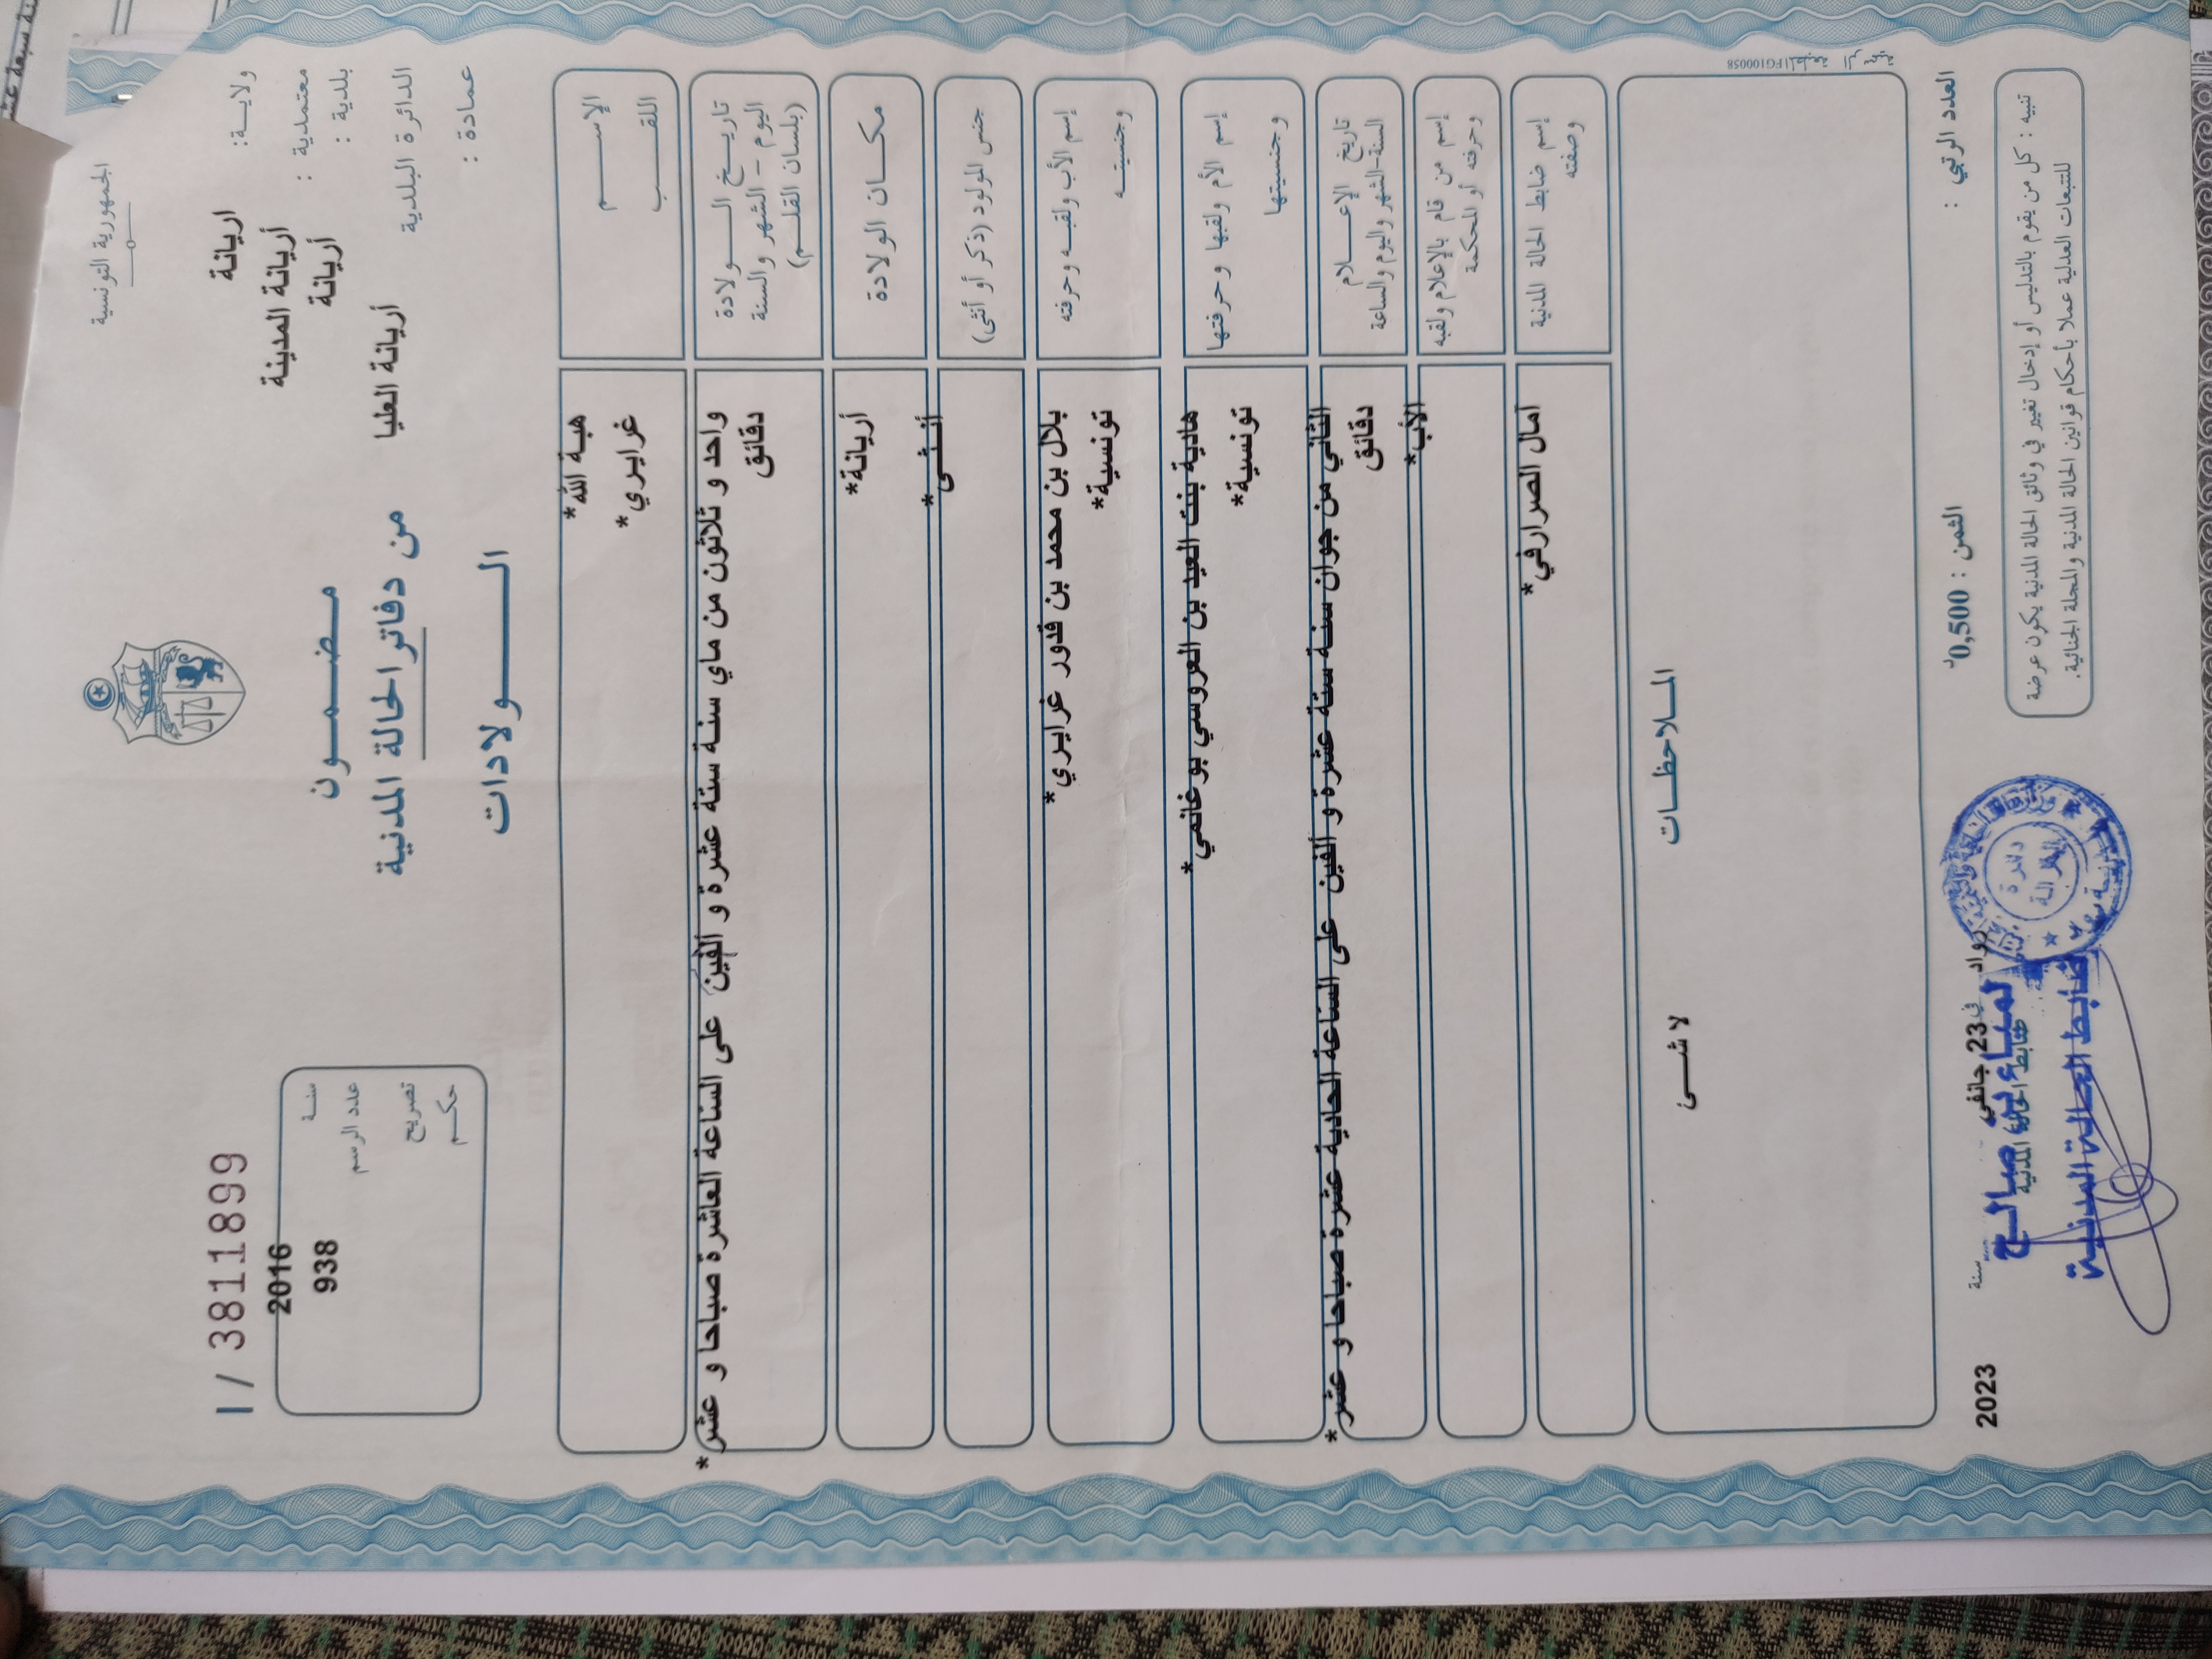 الجمهورية التونسية
I / 3811899
ولاية: اريانة
معتمدية : أريانة المدينة
بلدية : أريانة
الدائرة البلدية أريانة العليا
عمادة :
مضمون
من دفاتر الحالة المدنية
الولادات
سنة 2016
عدد الرسم 938
تصريح
حكم
الإسم هبة الله*
اللقب غرايري*
تاريخ الولادة واحد و ثلاثون من ماي سنة ستة عشرة و ألفين على الساعة العاشرة صباحا و عشر*
اليوم - الشهر والسنة دقائق
(بلسان القلم)
مكان الولادة أريانة*
جنس المولود (ذكر أو أنثى) أنثى*
إسم الأب ولقبه وحرفته بلال بن محمد بن قدور غرايري*
وجنسيته تونسية*
إسم الأم ولقبها وحرفتها هادية بنت العيد بن العروسي بوغانمي*
وجنسيتها تونسية*
تاريخ الإعلام الثاني من جوان سنة ستة عشرة و ألفين على الساعة الحادية عشرة صباحا و عشر*
السنة-الشهر واليوم والساعة دقائق
إسم من قام بالإعلام ولقبه الأب*
وحرفته أو المحكمة
إسم ضابط الحالة المدنية آمال الصرارفي*
وصفته
الملاحظات
لا شئ
FG100058
العدد الرتبي :
الثمن : 0,500د
رواد في 23 جانفي سنة 2023
ضابط الحالة المدنية
لمياء بن صالح
ضابط الحالة المدنية
دائرة
تنبيه : كل من يقوم بالتدليس أو إدخال تغيير في وثائق الحالة المدنية يكون عرضة
للتتبعات العدلية عملا بأحكام قوانين الحالة المدنية والمجلة الجنائية.